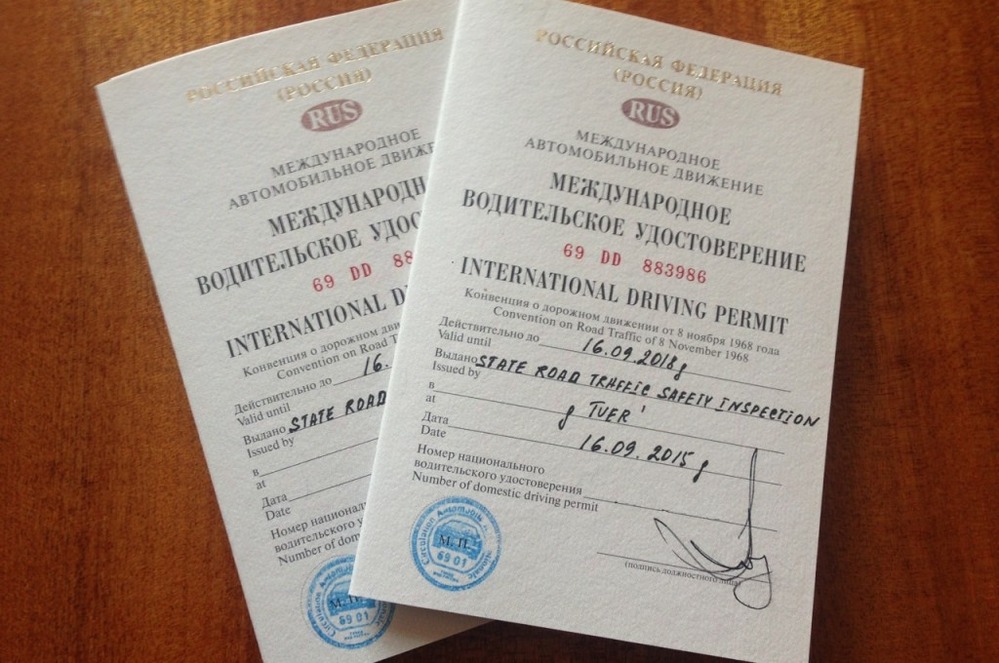 РОССИЙСКАЯ ФЕДЕРАЦИЯ
(РОССИЯ)
RUS
МЕЖДУНАРОДНОЕ
АВТОМОБИЛЬНОЕ ДВИЖЕ
МЕЖДУНАРОДН
ВОДИТЕЛЬСКОЕ УДОС
69 DD 88
INTERNATIONAL D
Конвенция о дорожном дви
Convention on Road T
Действительно до 16.
Valid until
Выдано STATE ROAD
Issued by
в
at
Дата
Date
Номер национал
водительского у
Number of dome
69 01
РОССИЙСКАЯ ФЕДЕРАЦИЯ
(РОССИЯ)
RUS
МЕЖДУНАРОДНОЕ
АВТОМОБИЛЬНОЕ ДВИЖЕНИЕ
МЕЖДУНАРОДНОЕ
ВОДИТЕЛЬСКОЕ УДОСТОВЕРЕНИЕ
69 DD 883986
INTERNATIONAL DRIVING PERMIT
Конвенция о дорожном движении от 8 ноября 1968 года
Convention on Road Traffic of 8 November 1968
Действительно до 16.09.2018г
Valid until
Выдано STATE ROAD TRAFFIC SAFETY INSPECTION
Issued by
в
at г TVER'
Дата
Date 16.09.2015г
Номер национального
водительского удостоверения
Number of domestic driving permit
Circulation Automobile
М. П.
69 01
(подпись должностного лица)